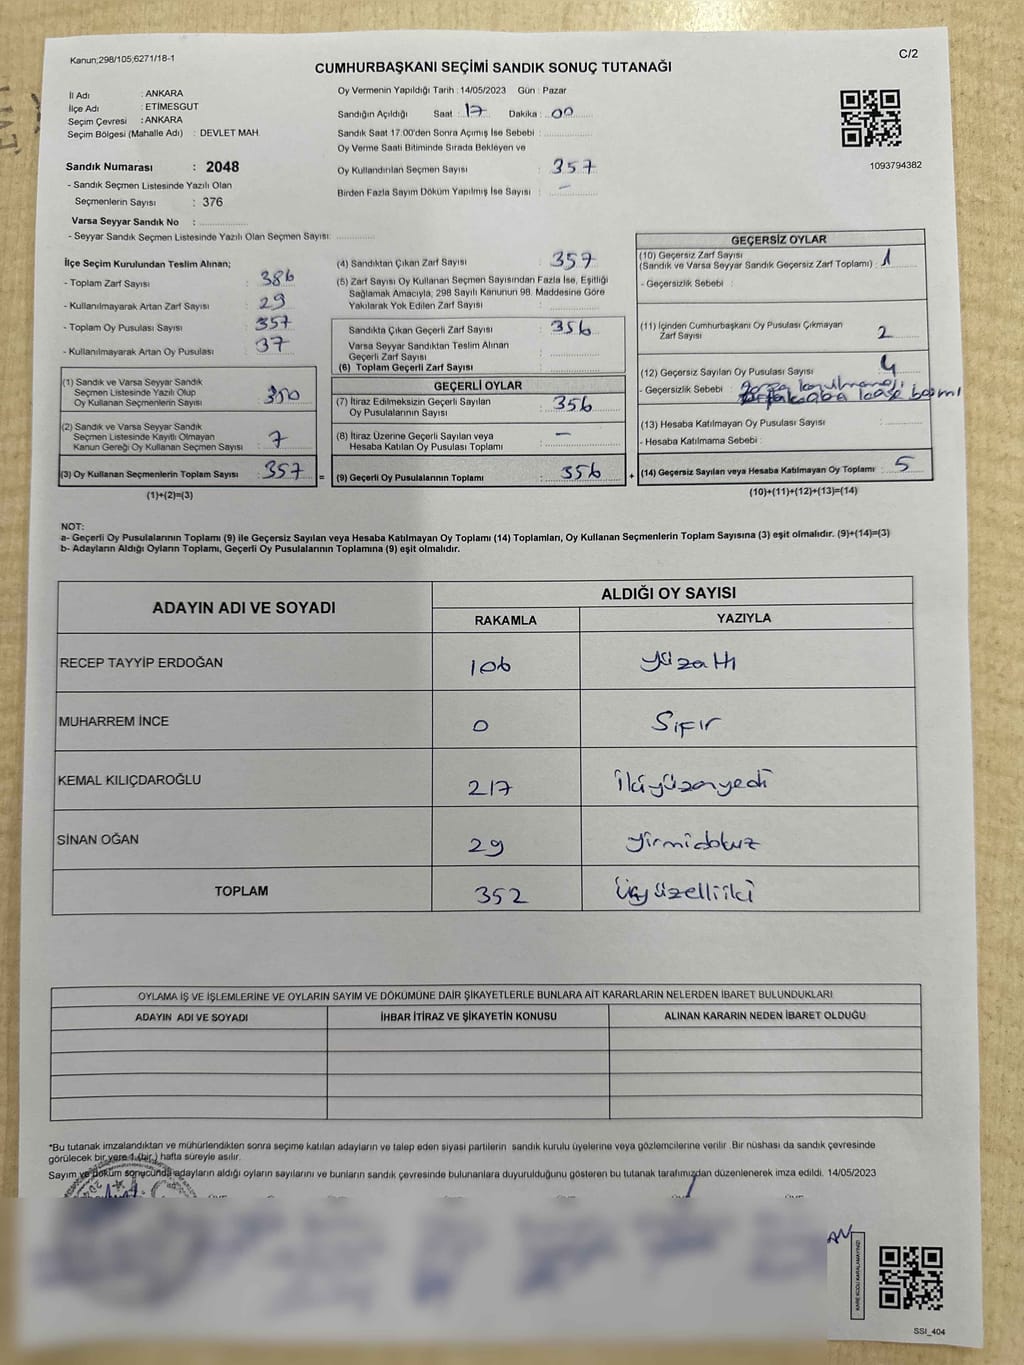 Kanun;298/105;6271/18-1
C/2
CUMHURBAŞKANI SEÇİMİ SANDIK SONUÇ TUTANAĞI
İl Adı : ANKARA
İlçe Adı : ETİMESGUT
Seçim Çevresi : ANKARA
Seçim Bölgesi (Mahalle Adı) : DEVLET MAH.
Sandık Numarası : 2048
- Sandık Seçmen Listesinde Yazılı Olan
Seçmenlerin Sayısı : 376
Varsa Seyyar Sandık No :
- Seyyar Sandık Seçmen Listesinde Yazılı Olan Seçmen Sayısı:
Oy Vermenin Yapıldığı Tarih : 14/05/2023 Gün : Pazar
Sandığın Açıldığı Saat : 17 Dakika : 00
Sandık Saat 17:00'den Sonra Açımış İse Sebebi :
Oy Verme Saati Bitiminde Sırada Bekleyen ve
Oy Kullandırılan Seçmen Sayısı : 357
Birden Fazla Sayım Döküm Yapılmış İse Sayısı : -
1093794382
İlçe Seçim Kurulundan Teslim Alınan;
- Toplam Zarf Sayısı : 386
- Kullanılmayarak Artan Zarf Sayısı : 29
- Toplam Oy Pusulası Sayısı : 357
- Kullanılmayarak Artan Oy Pusulası : 37
(1) Sandık ve Varsa Seyyar Sandık
Seçmen Listesinde Yazılı Olup
Oy Kullanan Seçmenlerin Sayısı : 350
(2) Sandık ve Varsa Seyyar Sandık
Seçmen Listesinde Kayıtlı Olmayan
Kanun Gereği Oy Kullanan Seçmen Sayısı : 7
(3) Oy Kullanan Seçmenlerin Toplam Sayısı : 357
(1)+(2)=(3)
(4) Sandıktan Çıkan Zarf Sayısı : 357
(5) Zarf Sayısı Oy Kullanan Seçmen Sayısından Fazla İse, Eşitliği
Sağlamak Amacıyla, 298 Sayılı Kanunun 98. Maddesine Göre
Yakılarak Yok Edilen Zarf Sayısı :
Sandıkta Çıkan Geçerli Zarf Sayısı : 356
Varsa Seyyar Sandıktan Teslim Alınan
Geçerli Zarf Sayısı :
(6) Toplam Geçerli Zarf Sayısı :
GEÇERLİ OYLAR
(7) İtiraz Edilmeksizin Geçerli Sayılan
Oy Pusulalarının Sayısı : 356
(8) İtiraz Üzerine Geçerli Sayılan veya
Hesaba Katılan Oy Pusulası Toplamı : -
= (9) Geçerli Oy Pusulalarının Toplamı : 356 +
GEÇERSİZ OYLAR
(10) Geçersiz Zarf Sayısı
(Sandık ve Varsa Seyyar Sandık Geçersiz Zarf Toplamı) : 1
- Geçersizlik Sebebi :
(11) İçinden Cumhurbaşkanı Oy Pusulası Çıkmayan
Zarf Sayısı : 2
(12) Geçersiz Sayılan Oy Pusulası Sayısı : 4
- Geçersizlik Sebebi :
(13) Hesaba Katılmayan Oy Pusulası Sayısı :
- Hesaba Katılmama Sebebi :
(14) Geçersiz Sayılan veya Hesaba Katılmayan Oy Toplamı : 5
(10)+(11)+(12)+(13)=(14)
NOT:
a- Geçerli Oy Pusulalarının Toplamı (9) ile Geçersiz Sayılan veya Hesaba Katılmayan Oy Toplamı (14) Toplamları, Oy Kullanan Seçmenlerin Toplam Sayısına (3) eşit olmalıdır. (9)+(14)=(3)
b- Adayların Aldığı Oyların Toplamı, Geçerli Oy Pusulalarının Toplamına (9) eşit olmalıdır.
ADAYIN ADI VE SOYADI
ALDIĞI OY SAYISI
RAKAMLA YAZIYLA
RECEP TAYYİP ERDOĞAN 106 yüzaltı
MUHARREM İNCE 0 Sıfır
KEMAL KILIÇDAROĞLU 217 ikiyüzonyedi
SİNAN OĞAN 29 yirmidokuz
TOPLAM 352 Üçyüzelliiki
OYLAMA İŞ VE İŞLEMLERİNE VE OYLARIN SAYIM VE DÖKÜMÜNE DAİR ŞİKAYETLERLE BUNLARA AİT KARARLARIN NELERDEN İBARET BULUNDUKLARI
ADAYIN ADI VE SOYADI İHBAR İTİRAZ VE ŞİKAYETİN KONUSU ALINAN KARARIN NEDEN İBARET OLDUĞU
*Bu tutanak imzalandıktan ve mühürlendikten sonra seçime katılan adayların ve talep eden siyasi partilerin sandık kurulu üyelerine veya gözlemcilerine verilir. Bir nüshası da sandık çevresinde
görülecek bir yere 1 (bir ) hafta süreyle asılır.
Sayım ve döküm sonucunda adayların aldığı oyların sayılarını ve bunların sandık çevresinde bulunanlara duyurulduğunu gösteren bu tutanak tarafımızdan düzenlenerek imza edildi. 14/05/2023
SSI_404